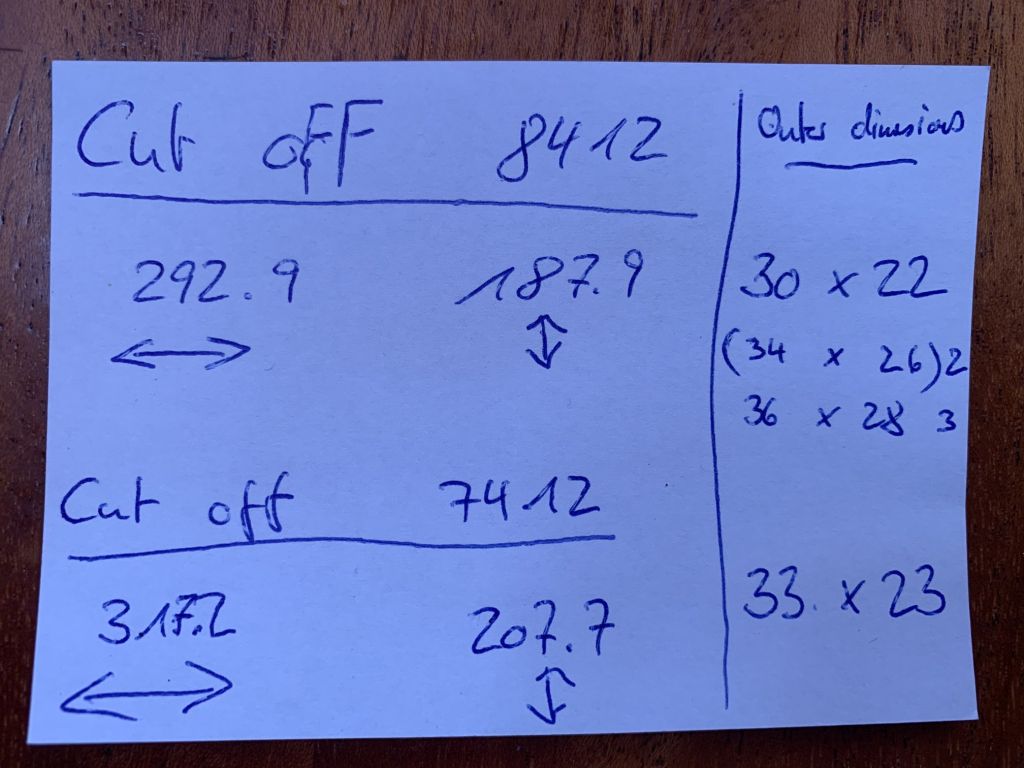 Cut off 8412
292.9 187.9
Cut off 7412
317.2 207.7
Outer dimesions
30 x 22
(34 x 26)2
36 x 28 3
33. x 23